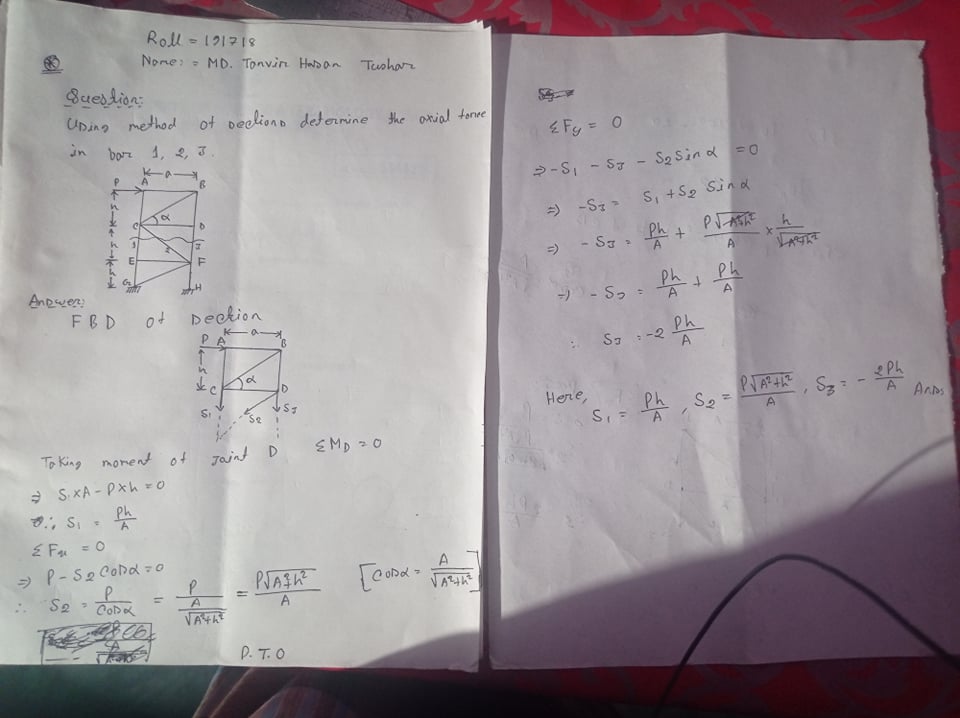 Roll = 191718
Name: = MD. Tanvir Hasan Tushar
Question:
Using method of sections determine the axial force
in bar 1, 2, 3.
a
P A B
h
C α D
h
1 2 3
E F
h
G H
Answer:
FBD of Section
a
P A B
h
C α D
S₁ S₂ S₃
Taking moment of Joint D ΣM_D = 0
⇒ S₁×A - P×h = 0
∴ S₁ = Ph/A
ΣFx = 0
⇒ P - S₂ Cosα = 0
∴ S₂ = P/Cosα = P/(A/√(A²+h²)) = P√(A²+h²)/A [Cosα = A/√(A²+h²)]
P.T.O
ΣFy = 0
⇒ -S₁ - S₃ - S₂ Sinα = 0
⇒ -S₃ = S₁ + S₂ Sinα
⇒ -S₃ = Ph/A + P√(A²+h²)/A × h/√(A²+h²)
⇒ -S₃ = Ph/A + Ph/A
∴ S₃ = -2 Ph/A
Here, S₁ = Ph/A, S₂ = P√(A²+h²)/A, S₃ = - 2Ph/A Ans